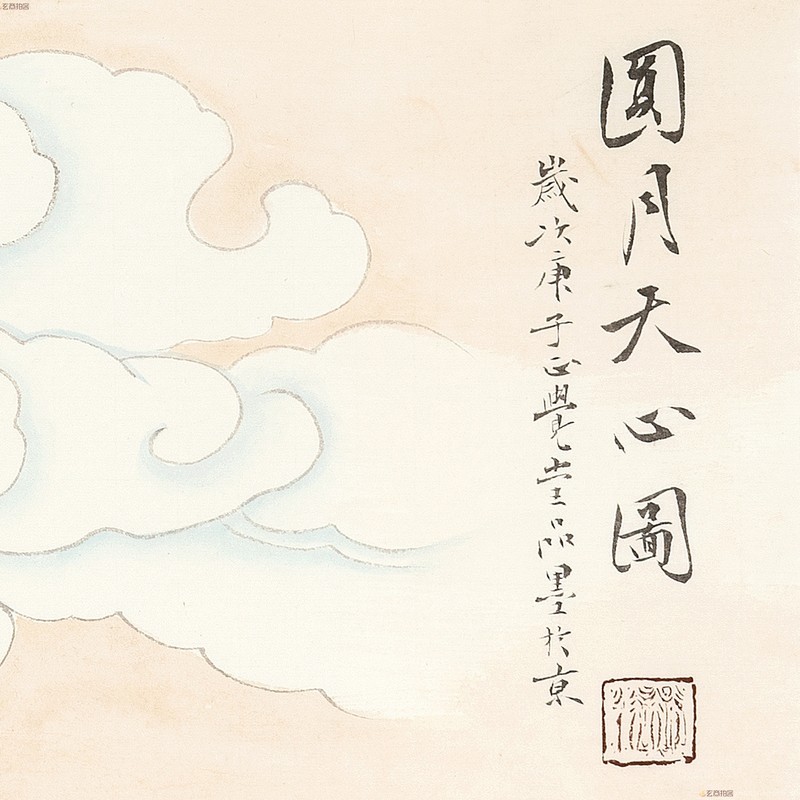 圓月天心圖
歲次庚子正覺堂品墨於京